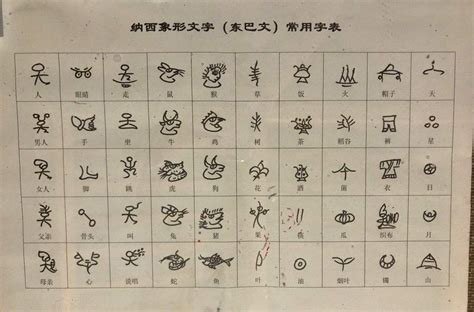 纳西象形文字（东巴文）常用字表
人 眼睛 走 鼠 猴 草 饭 火 帽子 天
男人 手 坐 牛 鸡 树 茶 稻谷 裤 星
女人 脚 跳 虎 狗 花 酒 菌 衣 日
父亲 骨头 叫 兔 猪 果 瓜 织布 月
母亲 心 说唱 蛇 鱼 叶 油 烟叶 镯 山